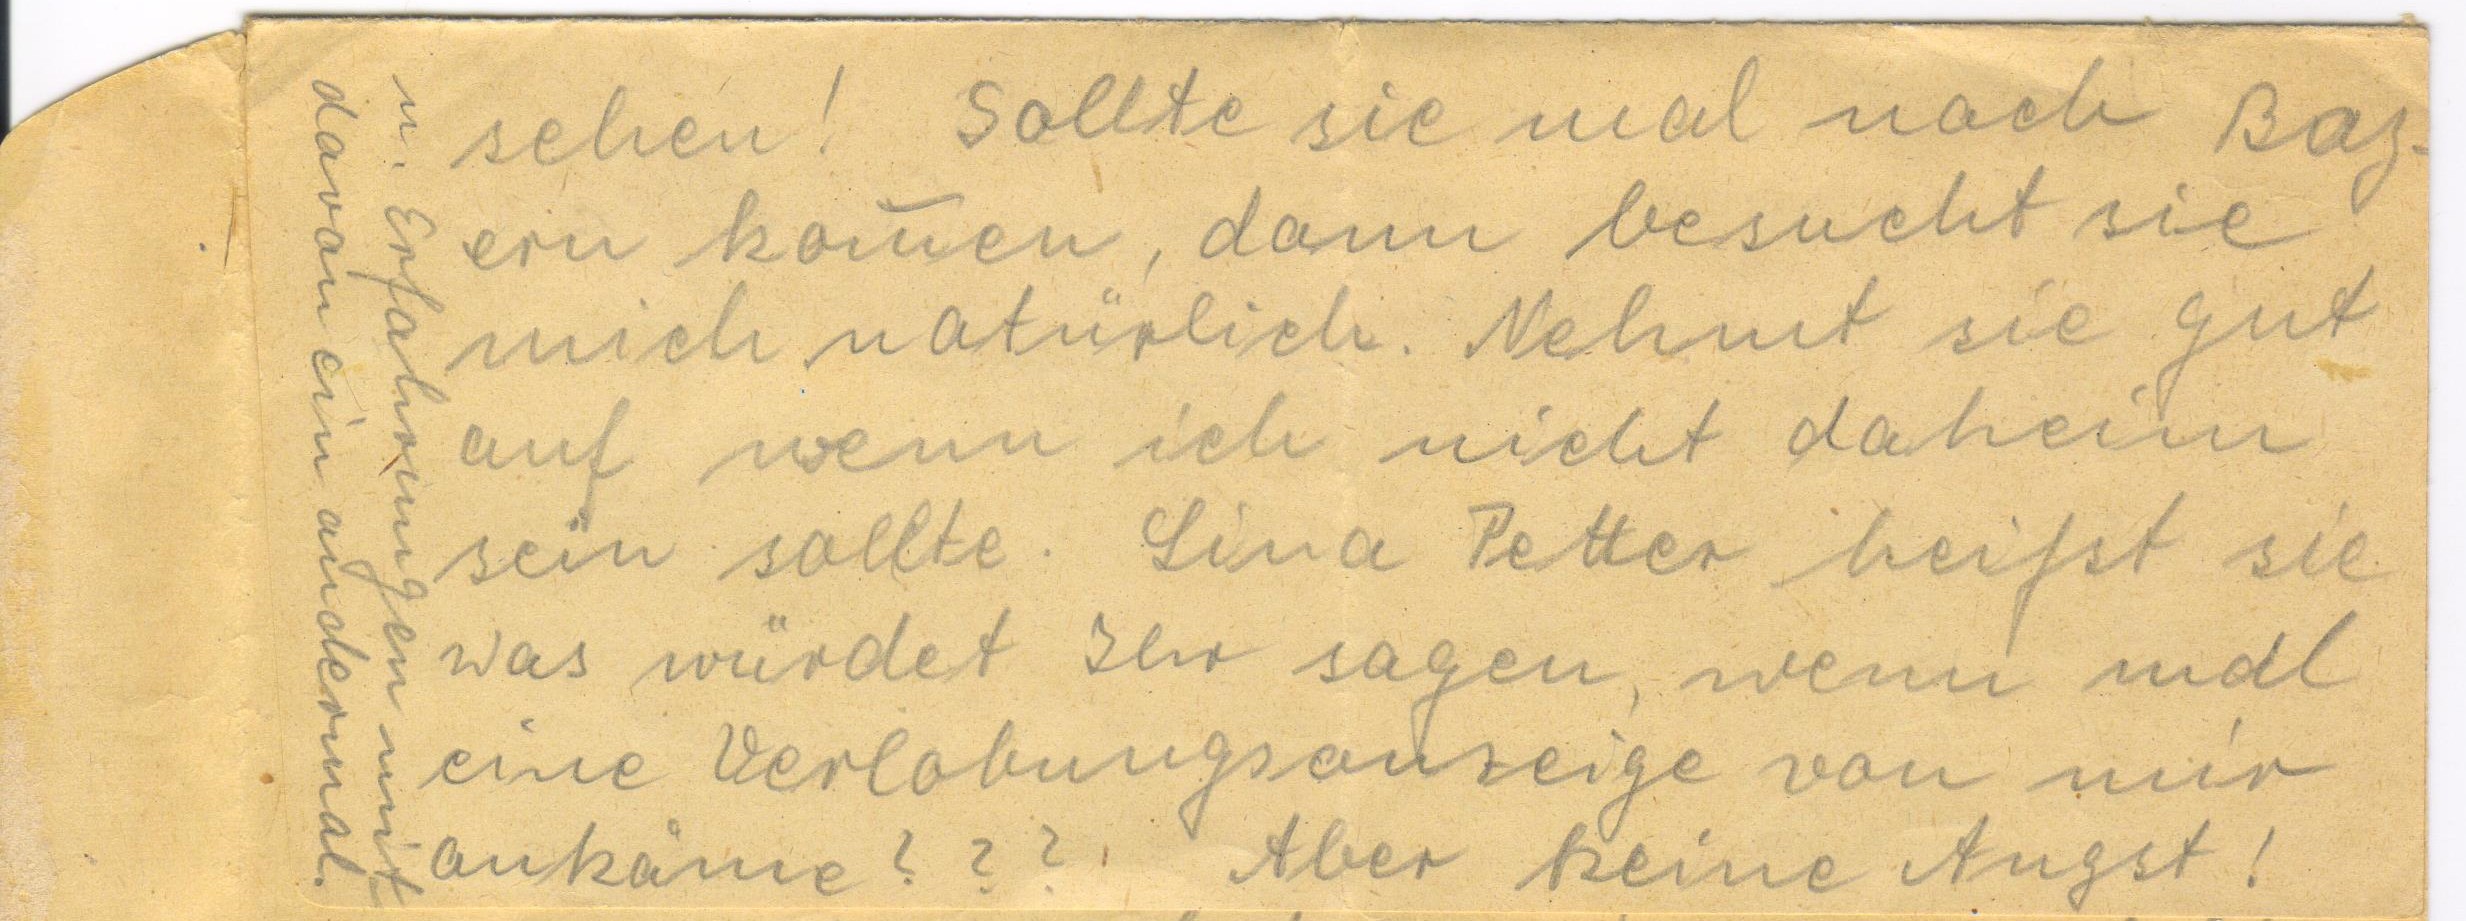 sehen! Sollte sie mal nach Bay-
ern kom̅en, dann besucht sie
mich natürlich. Nehmt sie gut
auf wenn ich nicht daheim
sein sollte. Lina Petter heißt sie
was würdet Ihr sagen, wenn mal
eine Verlobungsanzeige von mir
ankäme??? Aber keine Angst!
u. Erfahrungen mit
davon ein andermal.